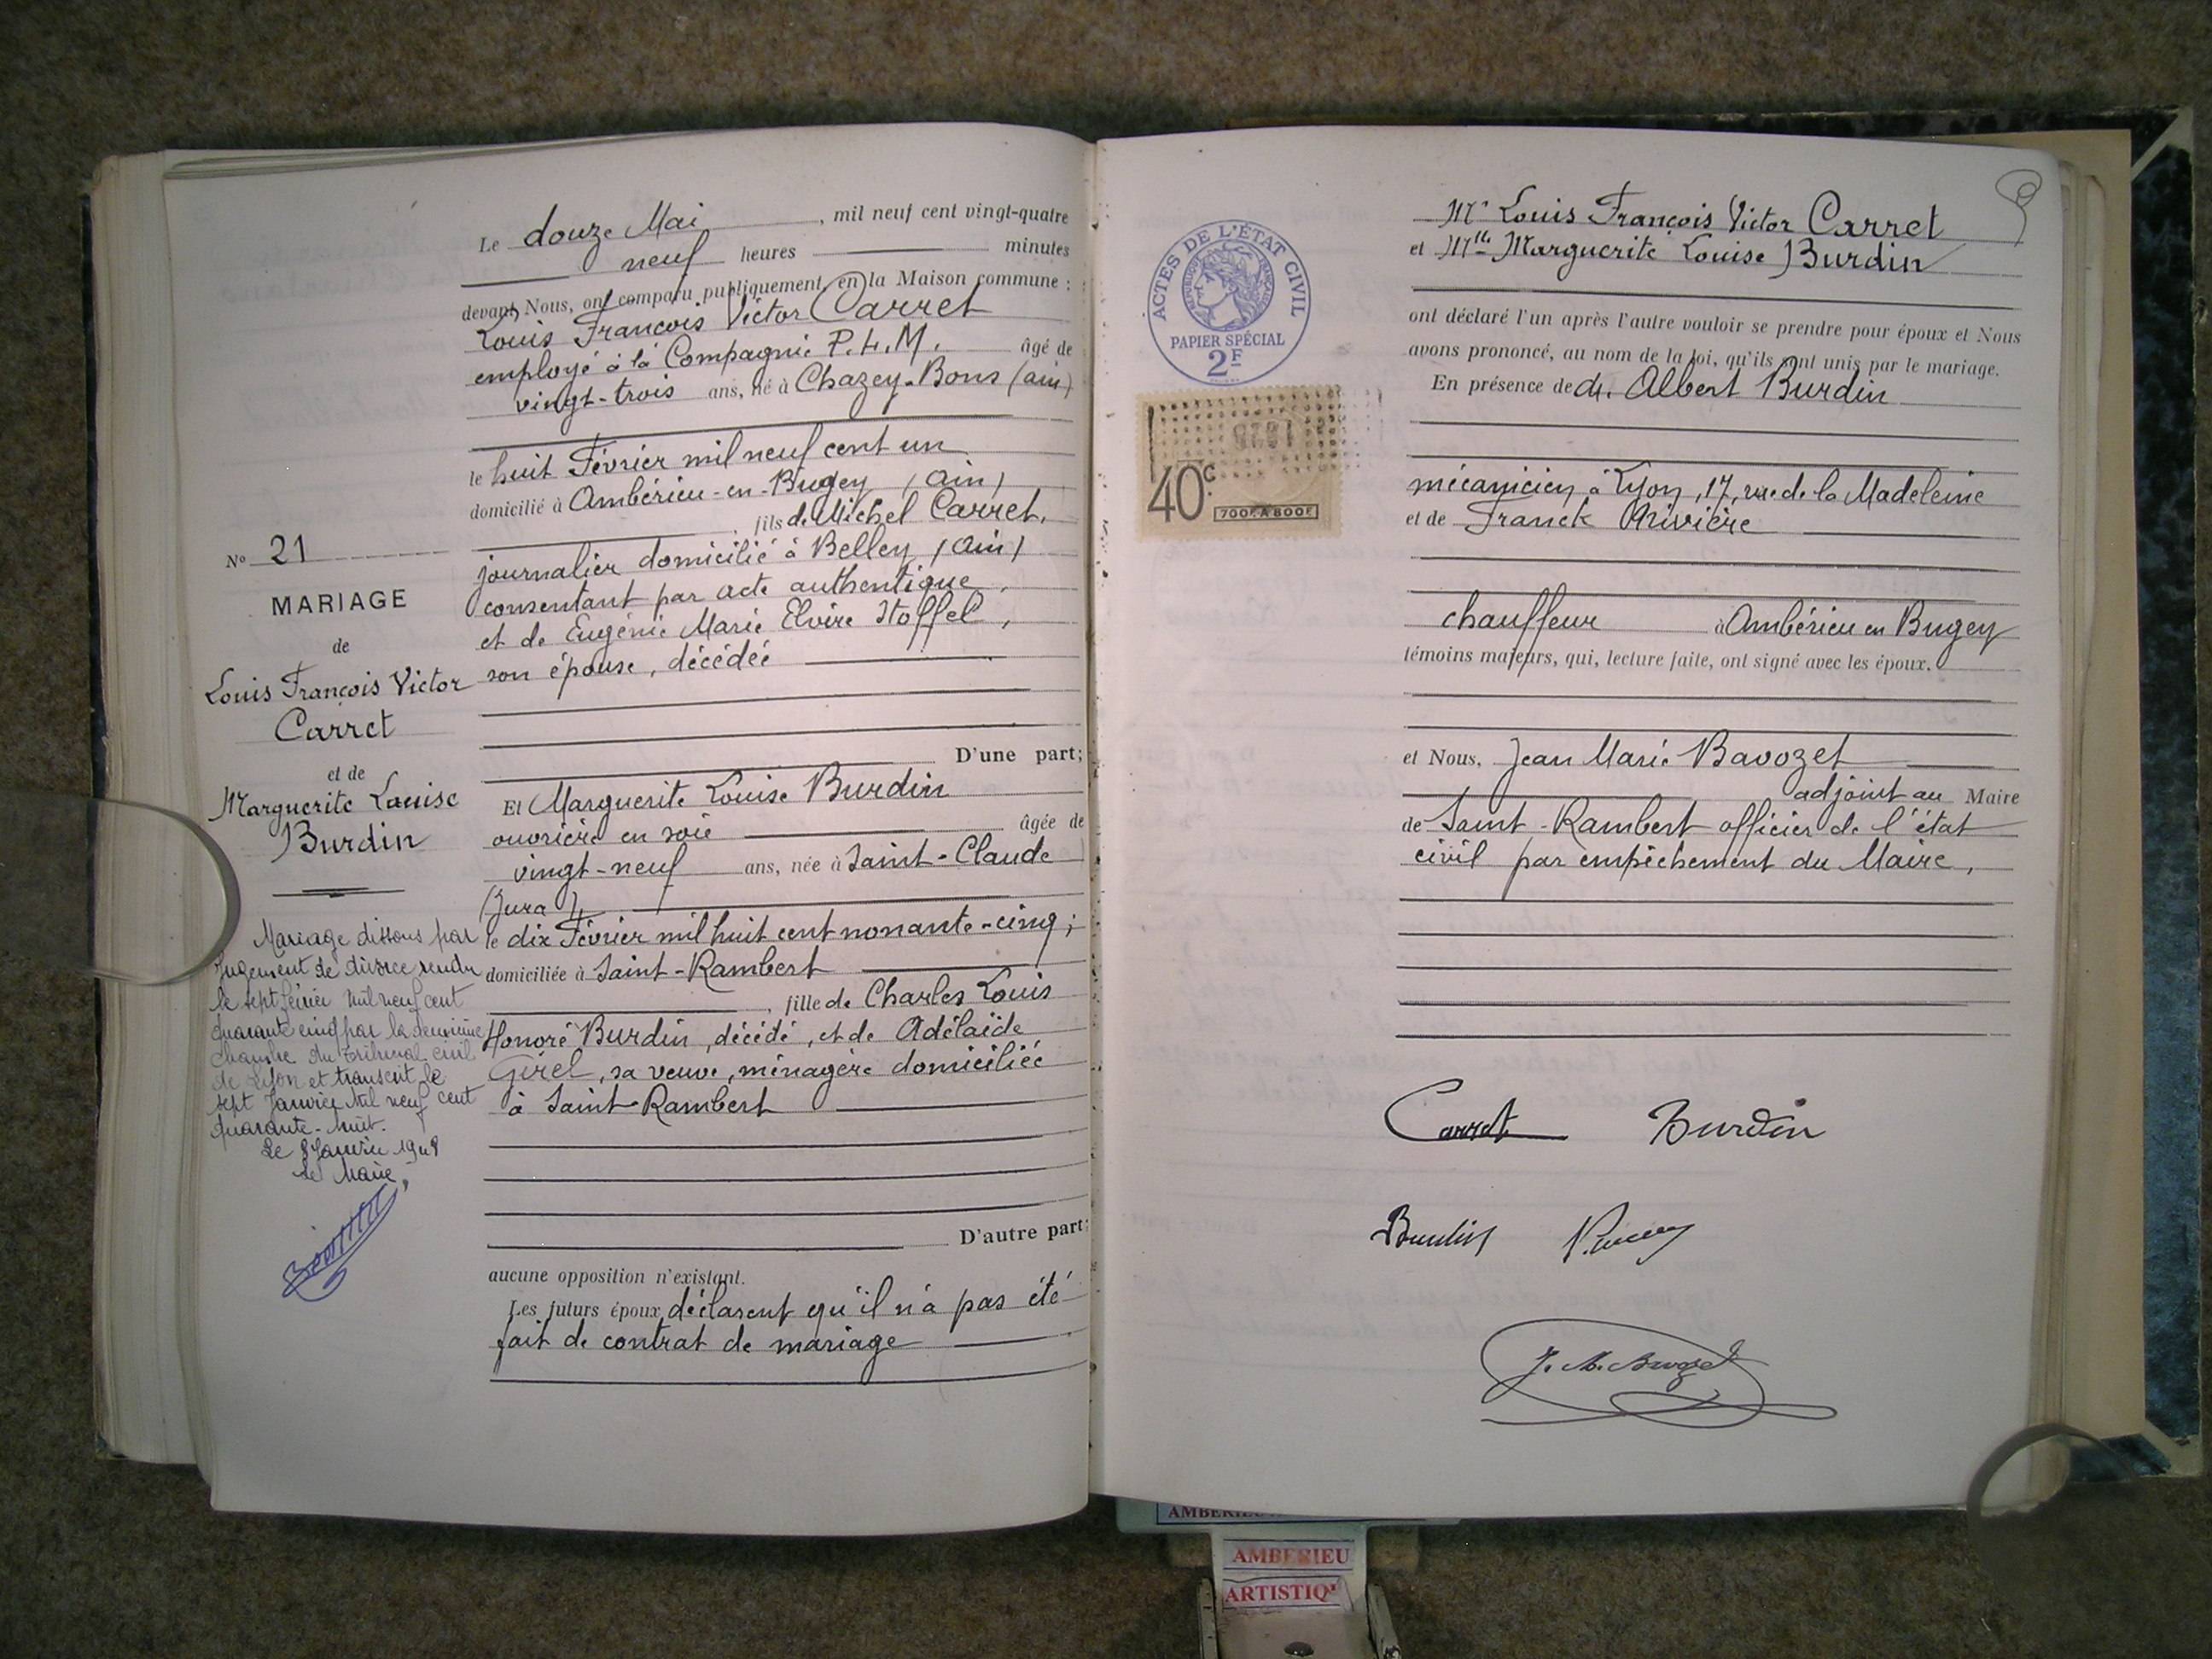 Le douze Mai, mil neuf cent vingt-quatre
neuf heures minutes
devant Nous, ont comparu publiquement en la Maison commune :
Louis François Victor Carret
employé à la Compagnie P.L.M. âgé de
vingt-trois ans, né à Chazey-Bons (ain)
le huit Février mil neuf cent un
domicilié à Ambérieu-en-Bugey (Ain)
, fils de Michel Carret,
journalier domicilié à Belley (Ain)
consentant par acte authentique,
et de Eugénie Marie Elvire Stoffel,
son épouse, décédée
D'une part;
Et Marguerite Louise Burdin
ouvrière en soie âgée de
vingt-neuf ans, née à Saint-Claude
(Jura),
le dix Février mil huit cent nonante-cinq;
domiciliée à Saint-Rambert
, fille de Charles Louis
Honoré Burdin, décédé, et de Adélaïde
Girel, sa veuve, ménagère domiciliée
à Saint-Rambert
D'autre part;
aucune opposition n'existant.
Les futurs époux déclarent qu'il n'a pas été
fait de contrat de mariage
No 21
MARIAGE
de
Louis François Victor
Carret
et de
Marguerite Louise
Burdin
Mariage dissous par
Jugement de divorce rendu
le sept février mil neuf cent
quarante cinq par la deuxième
Chambre du Tribunal civil
de Lyon et transcrit le
sept Janvier Mil neuf cent
quarante-huit.
Le 8 Janvier 1948
Le Maire,
ACTES DE L'ÉTAT CIVIL
RÉPUBLIQUE FRANÇAISE
PAPIER SPÉCIAL
2F
40c.
700F. A 800F.
Mr Louis François Victor Carret
et Mlle Marguerite Louise Burdin
ont déclaré l'un après l'autre vouloir se prendre pour époux et Nous
avons prononcé, au nom de la loi, qu'ils sont unis par le mariage.
En présence de Albert Burdin
mécanicien à Lyon, 17, rue de la Madeleine
et de Franck
chauffeur à Ambérieu en Bugey
témoins majeurs, qui, lecture faite, ont signé avec les époux.
et Nous, Jean Marie Bavozet
adjoint au Maire
de Saint-Rambert officier de l'état
civil par empêchement du Maire,
Carret Burdin
Burdin
J. M. Bavozet
AMBERIEU
ARTISTIQ